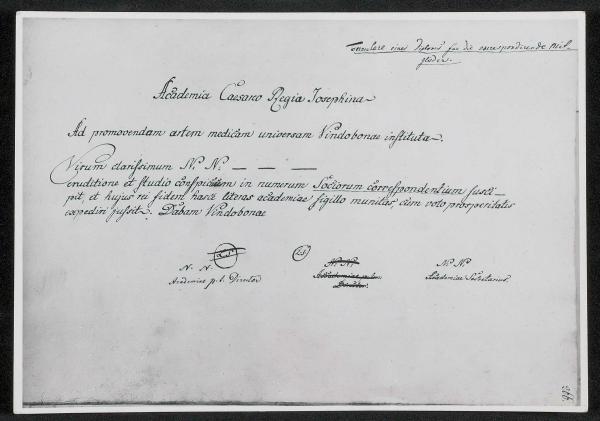 Formulare eines Diploms für die correspondirende Mit-
glieder.
Academia Caesareo Regia Josephina
Ad promovendam artem medicam universam Vindobonae instituta.
Virum clarissimum N. N. — — —
eruditione et studio conspicuum in numerum Sociorum correspondentium susci-
pit, et hujus rei fidem hasce literas academiae sigillo munitas, cum voto prosperitatis
expediri jussit. Dabam Vindobonae
L.S. L.S.
N. N. N. N. N. N.
Academiae p. t. Director Academiae Secretarius.